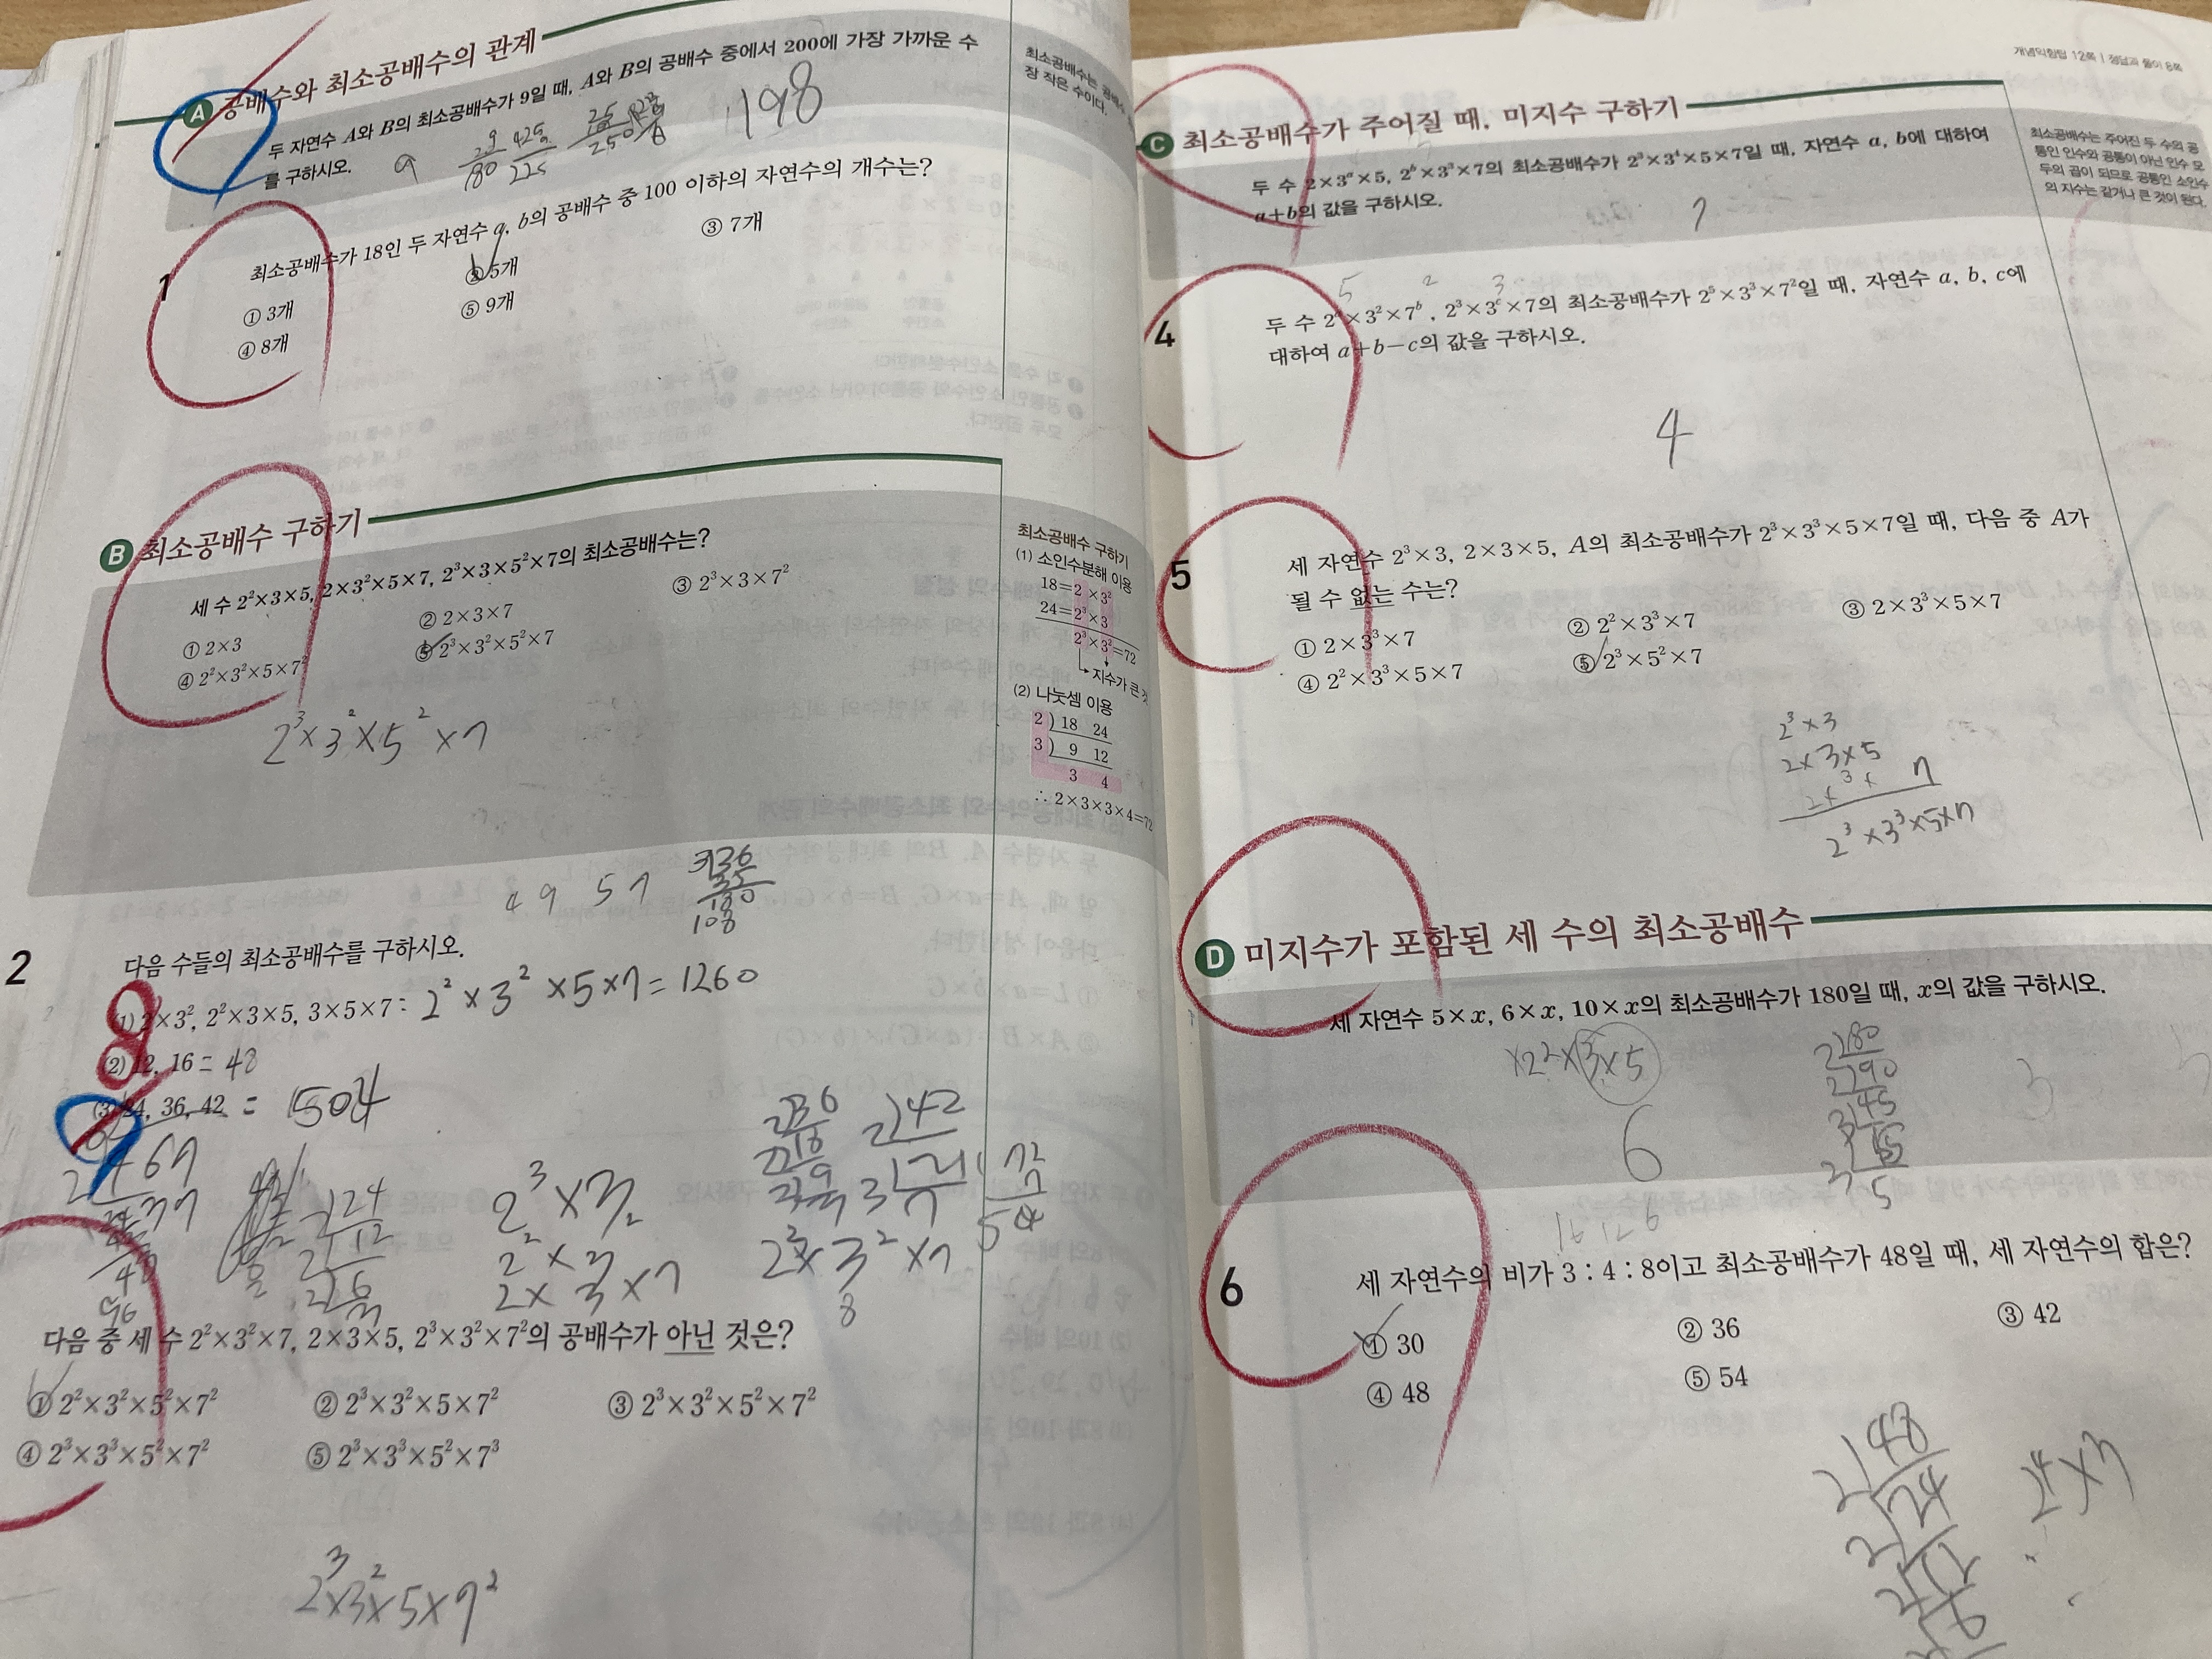 A 공배수와 최소공배수의 관계
두 자연수 A와 B의 최소공배수가 9일 때, A와 B의 공배수 중에서 200에 가장 가까운 수
를 구하시오.
9
198
최소공배수는 공배수
장 작은 수이다.
1
최소공배수가 18인 두 자연수 a, b의 공배수 중 100 이하의 자연수의 개수는?
① 3개
② 5개
③ 7개
④ 8개
⑤ 9개
B 최소공배수 구하기
세 수 2²×3×5, 2×3²×5×7, 2³×3×5²×7의 최소공배수는?
① 2×3
② 2×3×7
③ 2³×3×7²
④ 2²×3²×5×7²
⑤ 2³×3²×5²×7
2³×3²×5²×7
최소공배수 구하기
(1) 소인수분해 이용
18=2×3²
24=2³×3
2³×3²=72
지수가 큰 것
(2) 나눗셈 이용
2) 18 24
3) 9 12
3 4
∴ 2×3×3×4=72
4 9 5 7
2
다음 수들의 최소공배수를 구하시오.
(1) 2×3², 2²×3×5, 3×5×7 = 2²×3²×5×7=1260
(2) 12, 16 = 48
(3) 24, 36, 42 = 1504
2³×3
2×3×7
2³×3²×7
72
7
504
다음 중 세 수 2²×3²×7, 2×3×5, 2³×3²×7²의 공배수가 아닌 것은?
① 2²×3²×5²×7²
② 2³×3²×5×7²
③ 2³×3²×5²×7²
④ 2³×3³×5²×7²
⑤ 2³×3³×5²×7³
2³×3²×5×7²
개념익힘탑 12쪽 | 정답과 풀이 8쪽
C 최소공배수가 주어질 때, 미지수 구하기
두 수 2×3ᵃ×5, 2ᵇ×3³×7의 최소공배수가 2³×3⁴×5×7일 때, 자연수 a, b에 대하여
a+b의 값을 구하시오.
7
최소공배수는 주어진 두 수의 공
통인 인수와 공통이 아닌 인수 모
두의 곱이 되므로 공통인 소인수
의 지수는 같거나 큰 것이 된다.
5 2 3
4
두 수 2ᵃ×3²×7ᵇ, 2³×3ᶜ×7의 최소공배수가 2⁵×3³×7²일 때, 자연수 a, b, c에
대하여 a+b-c의 값을 구하시오.
4
5
세 자연수 2³×3, 2×3×5, A의 최소공배수가 2³×3³×5×7일 때, 다음 중 A가
될 수 없는 수는?
① 2×3³×7
② 2²×3³×7
③ 2×3³×5×7
④ 2²×3³×5×7
⑤ 2³×5²×7
2³×3
2×3×5
2³×3³×5×7
D 미지수가 포함된 세 수의 최소공배수
세 자연수 5×x, 6×x, 10×x의 최소공배수가 180일 때, x의 값을 구하시오.
×2²×3×5
6
2)180
2)90
3)45
3)15
5
16 12 6
6
세 자연수의 비가 3 : 4 : 8이고 최소공배수가 48일 때, 세 자연수의 합은?
① 30
② 36
③ 42
④ 48
⑤ 54
2)48
2)24
2)12
6
2⁴×3